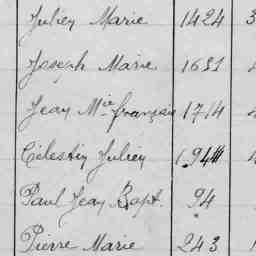 Julien Marie 1424 3
Joseph Marie 1621
Jean Mie français 1714
Célestin Julien 1944
Paul Jean Bapt. 94
Pierre Marie 243 1